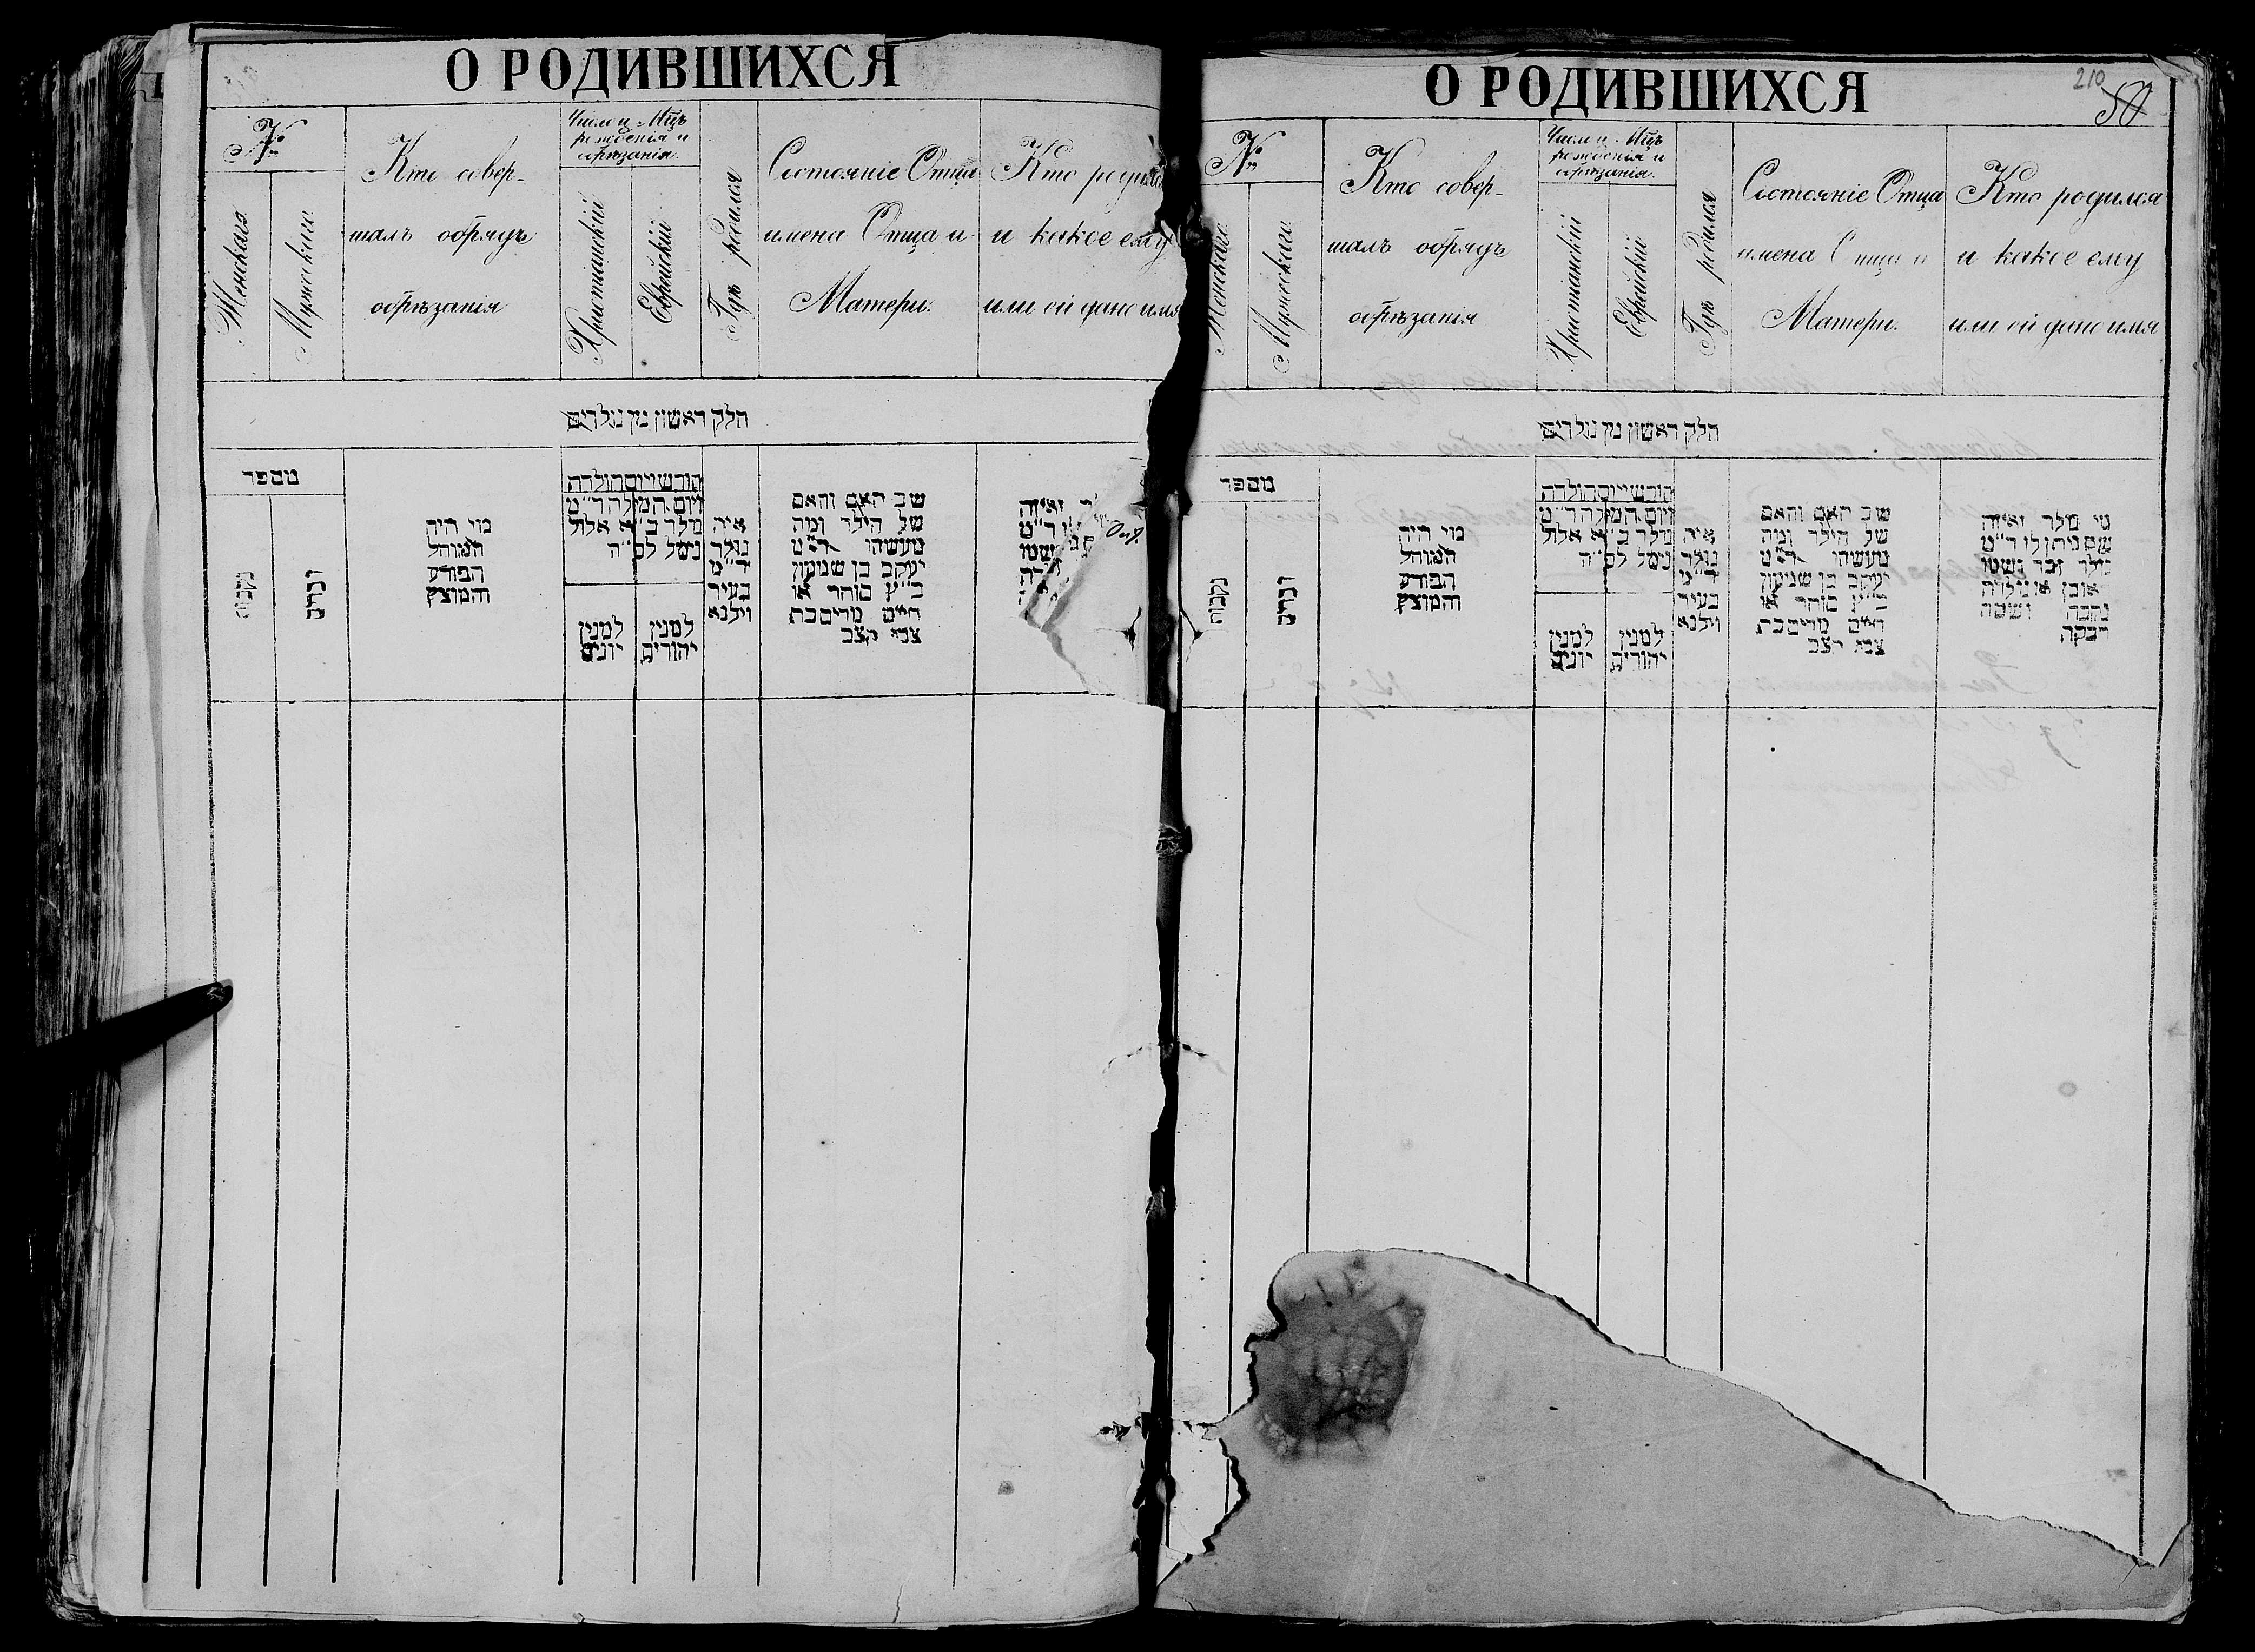 О РОДИВШИХСЯ
№
Женскаго
Мужескаго
Кто совер-
шалъ обрядъ
обрѣзанія
Число и Мцъ
рожденія и
обрѣзанія.
Христіанскій
Еврейскій
Гдѣ родился
Состояніе Отца
имена Отца и
Матери.
Кто родился
и какое ему
или ей дано имя
חלק ראשון מן נולדים
מספר
נקבות
זכרים
מי היה
המוהל
הפורע
והמוצץ
חודש ויום הולדת
ויום המילה ר"ט
נולד ב"א אלול
נימל לס"ה
למנין
יונים
למנין
יהודים
איה
נולד
ד"מ
בעיר
ווילנא
שב האם והאם
של הילד ומה
מעשהו ד"מ
יעקב בן שמעון
כ"ץ סוחר או
חיים מרים בת
צבי הצב
О РОДИВШИХСЯ
210
50
№
Женскаго
Мужескаго
Кто совер-
шалъ обрядъ
обрѣзанія
Число и Мцъ
рожденія и
обрѣзанія.
Христіанскій
Еврейскій
Гдѣ родился
Состояніе Отца
имена Отца и
Матери.
Кто родился
и какое ему
или ей дано имя
חלק ראשון מן נולדים
מספר
נקבות
זכרים
מי היה
המוהל
הפורע
והמוצץ
חודש ויום הולדת
ויום המילה ר"ט
נולד ב"א אלול
נימל לס"ה
למנין
יונים
למנין
יהודים
איה
נולד
ד"מ
בעיר
ווילנא
שב האם והאם
של הילד ומה
מעשהו ד"מ
יעקב בן שמעון
כ"ץ סוחר או
חיים מרים בת
צבי הצב
מי נולד ואיזה
שם ניתן לו ד"מ
נולד זכר ושמו
ראובן או נולדה
נקבה ושמה
רבקה